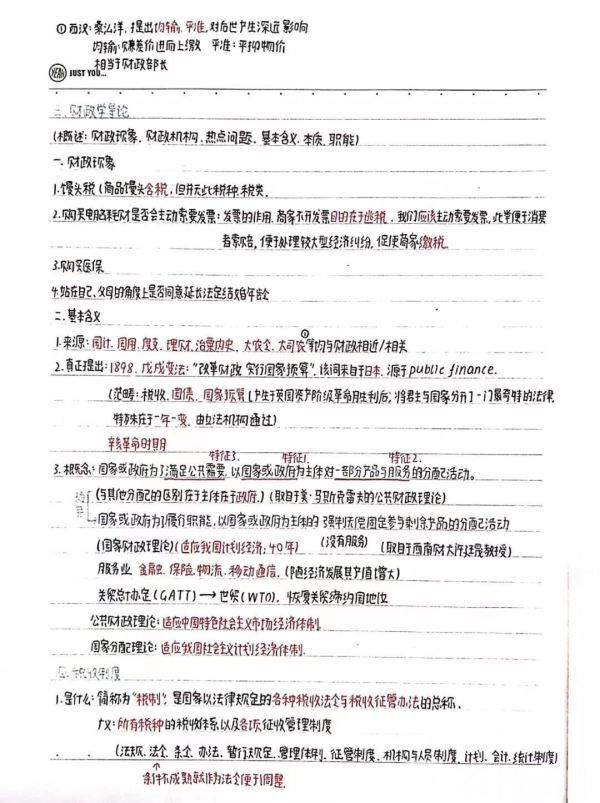 ①西汉:桑弘洋,提出均输、平准,对后世产生深远影响
均输:赚差价进而上缴 平准:平抑物价
相当于财政部长
YEAH JUST YOU...
三.财政学导论
(概述:财政现象、财政机构、热点问题、基本含义、本质、职能)
一.财政现象
1.馒头税(商品馒头含税,但并无此税种税类.
2.购买电脑耗材是否会主动索要发票:发票的作用.商家不开发票目的在于逃税.我们应该主动索要发票,此举便于消费
者索赔,便于处理较大型经济纠纷,促使商家缴税.
3.购买医保
4.站在自己、父母的角度上是否同意延长法定结婚年龄
二.基本含义
①
1.来源:国计、国用、度支、理财、治粟内史、大农令、大司农等均与财政相近/相关
2.真正提出:1898.戊戌变法:“改革财政,实行国家预算”,该词来自于日本.源于public finance.
(范畴:税收、国债、国家预算[产生于英国资产阶级革命胜利后;将君主与国家分开]一门最奇特的法律.
特殊在于一年一变.由立法机构通过)
辛亥革命时期
特征3. 特征1. 特征2.
3.概念:国家或政府为了满足公共需要,以国家或政府为主体对一部分产品与服务的分配活动。
(与其他分配的区别在于主体在于政府.)(取自于美·马斯格雷夫的公共财政理论)
国家或政府为了履行职能,以国家或政府为主体的强制无偿固定参与剩余产品的分配活动
(国家财政理论)(适应我国计划经济:40年) (没有服务) (取自于西南财大许廷星教授)
服务业、金融、保险、物流、移动通信.(随经济发展其产值增大)
关贸总协定(GATT)→世贸(WTO),恢复关贸缔约国地位
公共财政理论:适应中国特色社会主义市场经济体制.
国家分配理论:适应我国社会主义计划经济体制.
四.税收制度
1.是什么:简称为“税制”,是国家以法律规定的各种税收法令与税收征管办法的总称.
广义:所有税种的税收体系以及各项征收管理制度
(法规、法令、条令、办法、暂行规定、管理体制、征管制度、机构与人员制度、计划、会计、统计制度)
条件不成熟就作为法令便于调整.